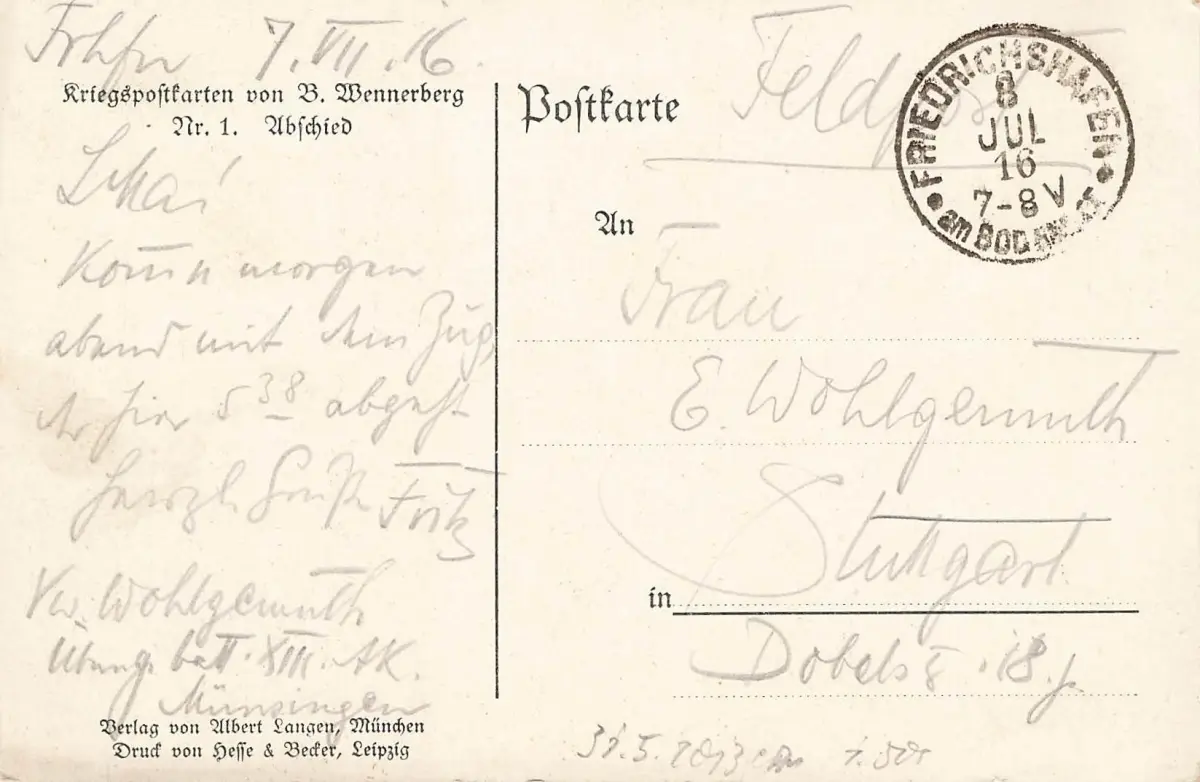 Frhfn 7. VII. 16.
Kriegspostkarten von B. Wennerberg
Nr. 1. Abschied
Komme morgen
abend mit dem Zug,
der hier 5 38 abgeht
Herzl. Grüße Fritz
Wohlgemuth
Übungsbatt. XIII. AK.
Münsingen
Verlag von Albert Langen, München
Druck von Hesse & Becker, Leipzig
Postkarte
Feldpost
FRIEDRICHSHAFEN
8
JUL
16
7-8 V
am BODENSEE
An
Frau
E. Wohlgemuth
Stuttgart
in
18
31.5.